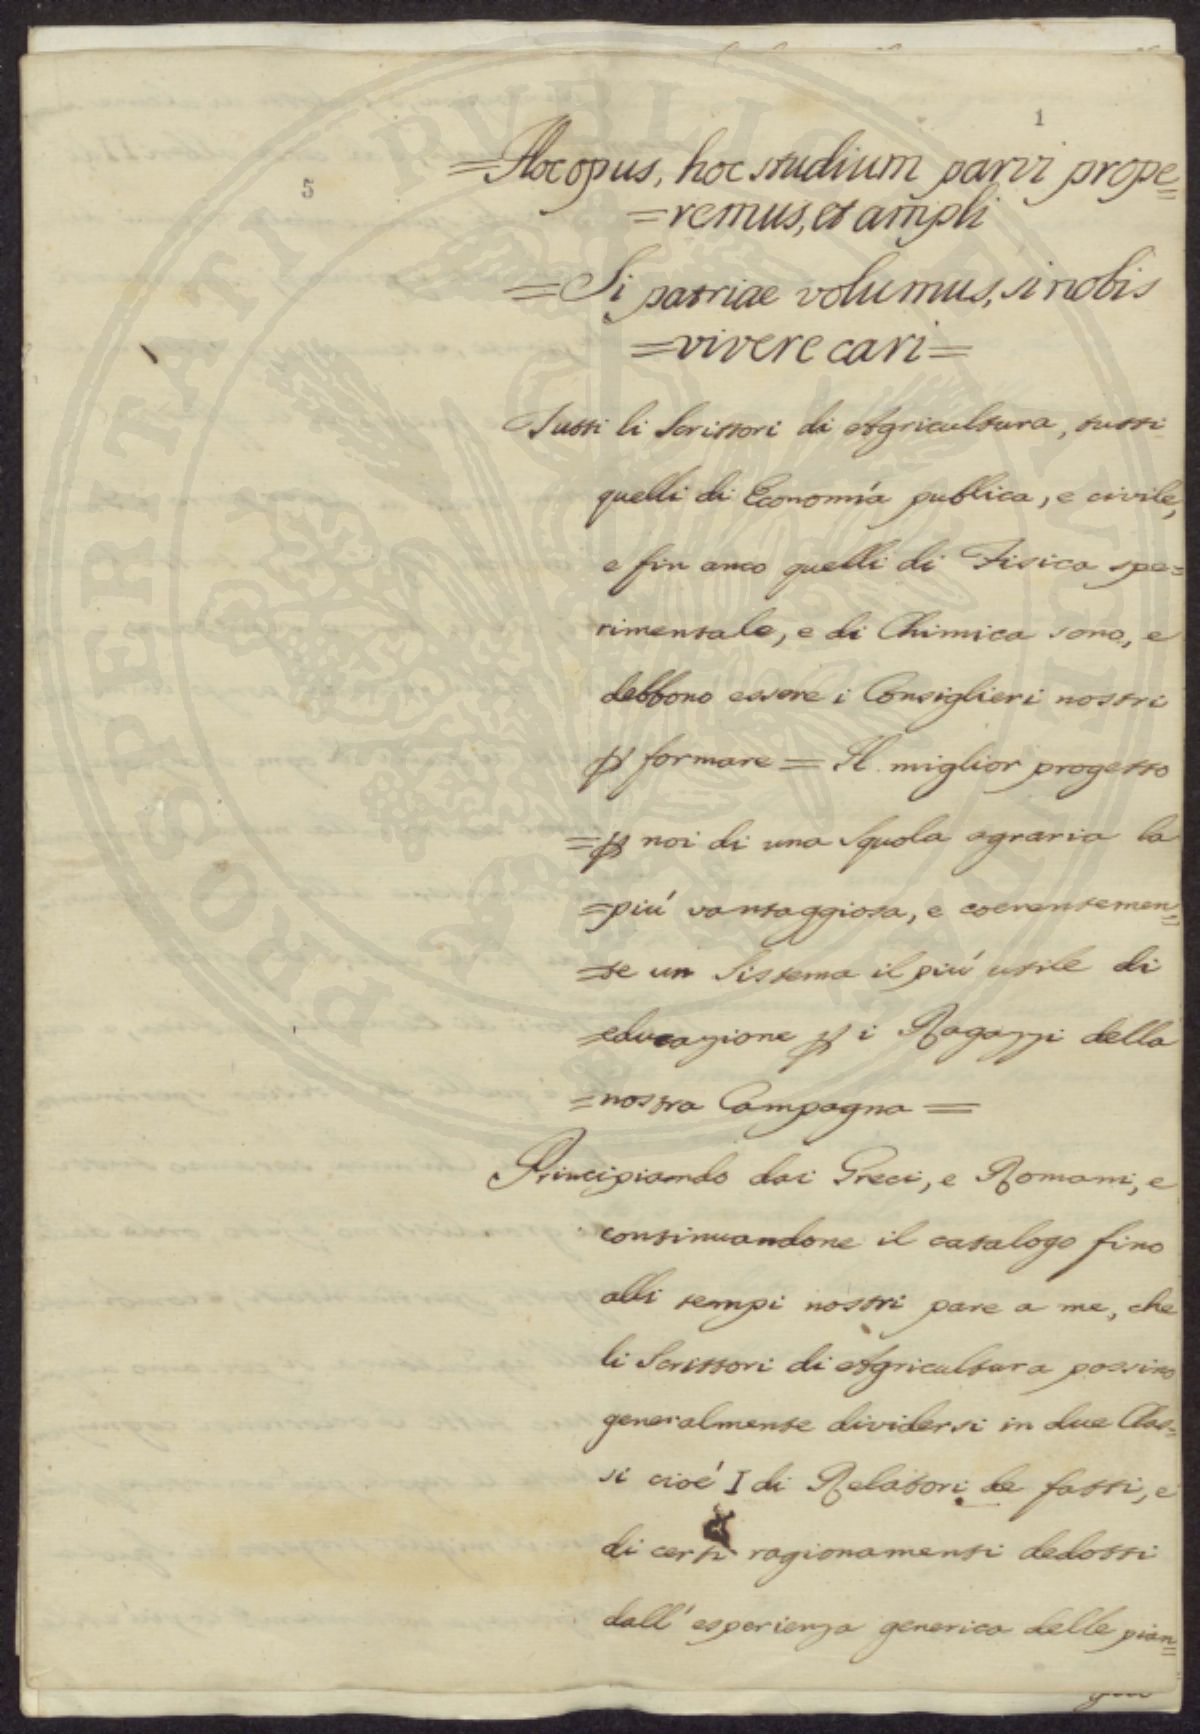 1
5
=Hoc opus, hoc studium parvi prope=
=remus, et ampli
=Si patriae volumus, si nobis
=vivere cari=
Tutti li Scrittori di Agricultura, tutti
quelli di Economía publica, e civile,
e fin anco quelli di Fisica spe=
rimentale, e di Chimica sono, e
debbono essere i Consiglieri nostri
ꝑ formare = Il miglior progetto
=ꝑ noi di una Squola agraria la
=piú vantaggiosa, e coerentemen=
=te un Sistema il piú utile di
=educazione ꝑ i Ragazzi della
=nostra Campagna=
Principiando dai Greci, e Romani, e
continuandone il catalogo fino
alli tempi nostri pare a me, che
li Scrittori di Agricultura possino
generalmente dividersi in due Clas=
si cioé I di Relatori de fatti, e
di certi ragionamenti dedotti
dall' esperienza generica delle pian=
PROSPERITATI PUBLICAE AUGENDAE